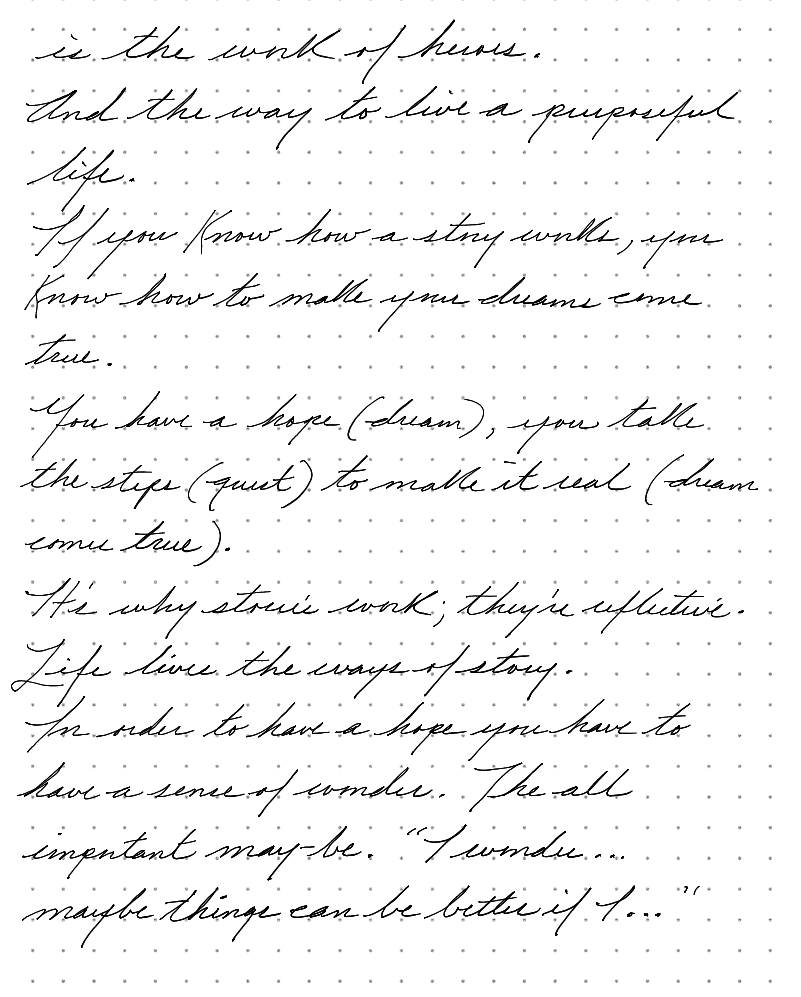 is the work of heroes.
And the way to live a purposeful
life.
If you know how a story works, you
know how to make your dreams come
true.
You have a hope (dream), you take
the steps (quest) to make it real (dream
come true).
It's why stories work; they're reflective.
Life lives the ways of story.
In order to have a hope you have to
have a sense of wonder. The all
important may-be. "I wonder...
maybe things can be better if I..."